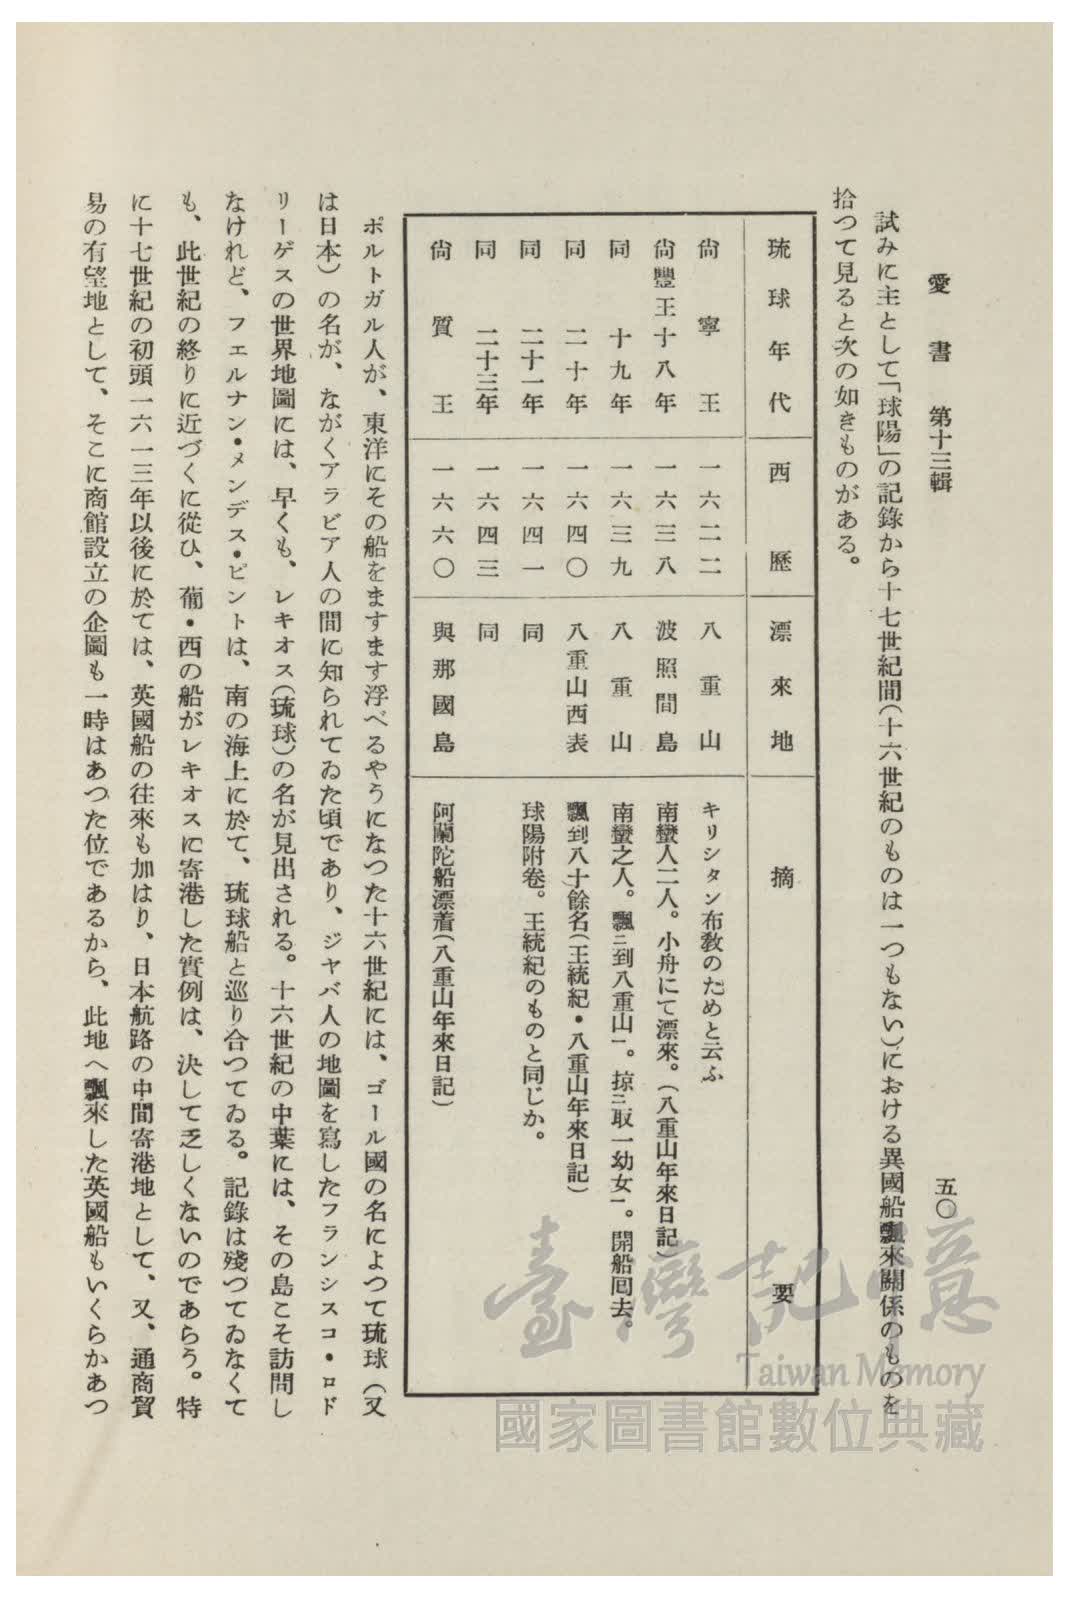 愛書 第十三輯 五〇
試みに主として「球陽」の記錄から十七世紀間(十六世紀のものは一つもない)における異國船飄來關係のものを
拾つて見ると次の如きものがある。
琉球年代 西歷 漂來地 摘要
尙寧王 一六二二 八重山 キリシタン布敎のためと云ふ
尙豐王十八年 一六三八 波照間島 南蠻人二人。小舟にて漂來。(八重山年來日記)
同 十九年 一六三九 八重山 南蠻之人。飄ニ到八重山一。掠ニ取一幼女一。開船囘去。
同 二十年 一六四〇 八重山西表 飄到八十餘名(王統紀・八重山年來日記)
同 二十一年 一六四一 同 球陽附卷。王統紀のものと同じか。
同 二十三年 一六四三 同
尙質王 一六六〇 與那國島 阿蘭陀船漂着(八重山年來日記)
ポルトガル人が、東洋にその船をますます浮べるやうになつた十六世紀には、ゴール國の名によつて琉球(又
は日本)の名が、ながくアラビア人の間に知られてゐた頃であり、ジヤバ人の地圖を寫したフランシスコ・ロド
リーゲスの世界地圖には、早くも、レキオス(琉球)の名が見出される。十六世紀の中葉には、その島こそ訪問し
なけれど、フェルナン・メンデス・ピントは、南の海上に於て、琉球船と巡り合つてゐる。記錄は殘つてゐなくて
も、此世紀の終りに近づくに從ひ、葡・西の船がレキオスに寄港した實例は、決して乏しくないのであらう。特
に十七世紀の初頭一六一三年以後に於ては、英國船の往來も加はり、日本航路の中間寄港地として、又、通商貿
易の有望地として、そこに商館設立の企圖も一時はあつた位であるから、此地へ飄來した英國船もいくらかあつ
臺灣記憶
Taiwan Memory
國家圖書館數位典藏